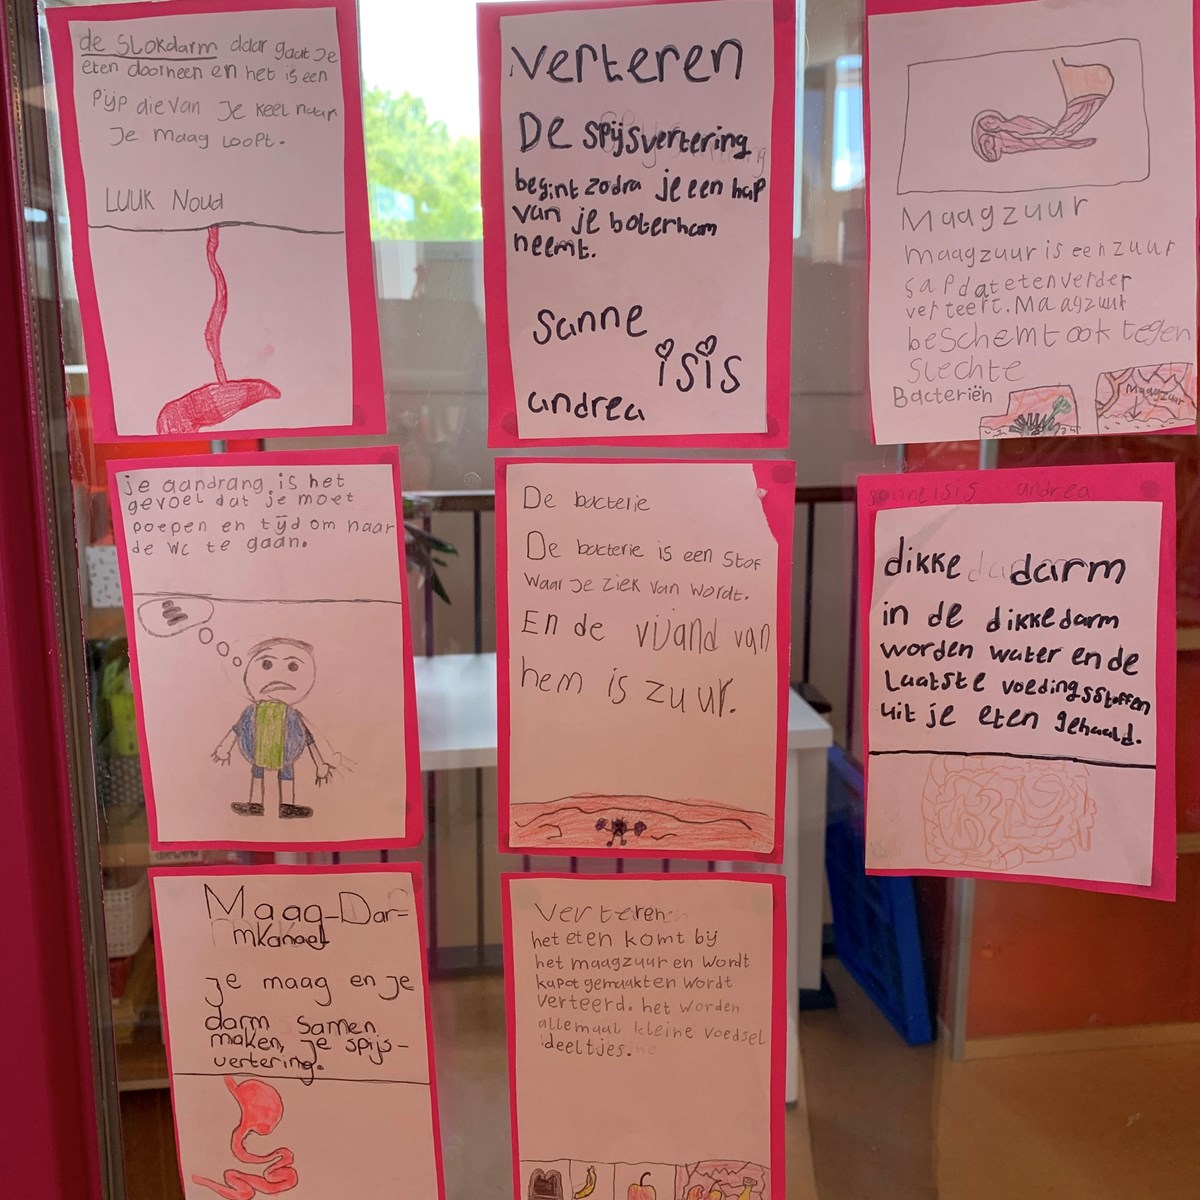 de slokdarm daar gaat je
eten doorheen en het is een
Pijp die van je keel naar
Je maag loopt.
LUUK Noud
verteren
De spijsvertering
begint zodra je een hap
van je boterham
neemt.
Sanne
isis
andrea
Maagzuur
maagzuur is een zuur
sap dat eten verder
verteert. Maagzuur
beschemt ook tegen
Slechte
Bacteriën
Maagzuur
je aandrang is het
gevoel dat je moet
poepen en tijd om naar
de wc te gaan.
De bacterie
De bacterie is een stof
waar je ziek van wordt.
En de vijand van
hem is zuur.
sanne isis andrea
dikke darm
in de dikkedarm
worden water en de
Laatste voedingsstoffen
uit je eten gehaald.
Maag-Dar-
mkanaal
je maag en je
darm samen
maken, je spijs-
vertering.
Verteren
het eten komt bij
het maagzuur en wordt
kapot gemaakt en wordt
verteerd. het worden
allemaal kleine voedsel
deeltjes.